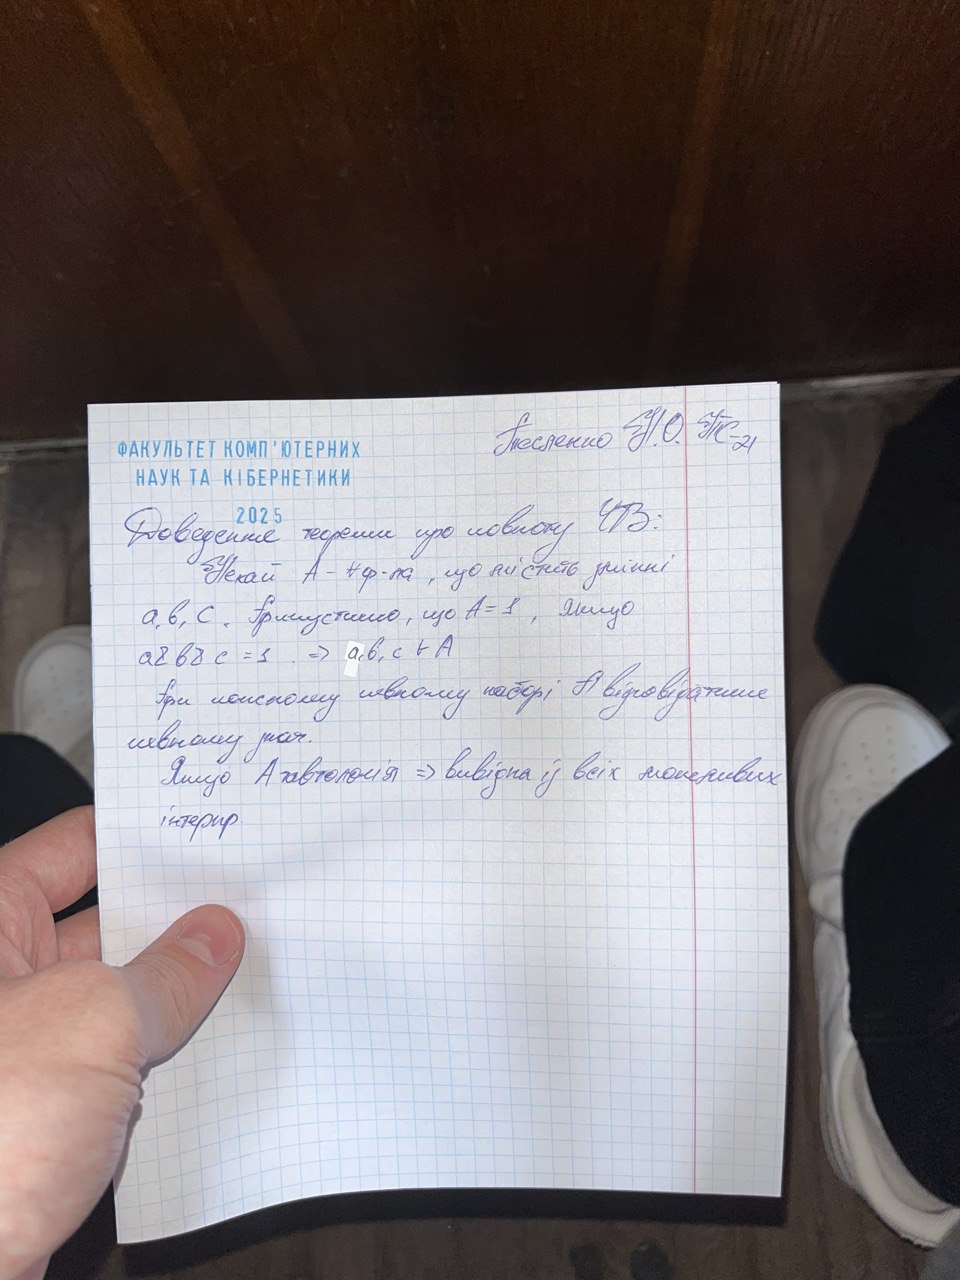 ФАКУЛЬТЕТ КОМП'ЮТЕРНИХ
НАУК ТА КІБЕРНЕТИКИ
2025
Тесленко Н.О. ТТС-21
Доведення теореми про повноту ЧВ:
Нехай А - ∀ ф-ла, що містить змінні
a, b, c. Припустимо, що А=1, Якщо
a & b & c = 1 => a, b, c ⊢ A
При кожному певному наборі А відповідатиме
певному знач.
Якщо А тавтологія => вивідна із всіх можливих
інтерпр.